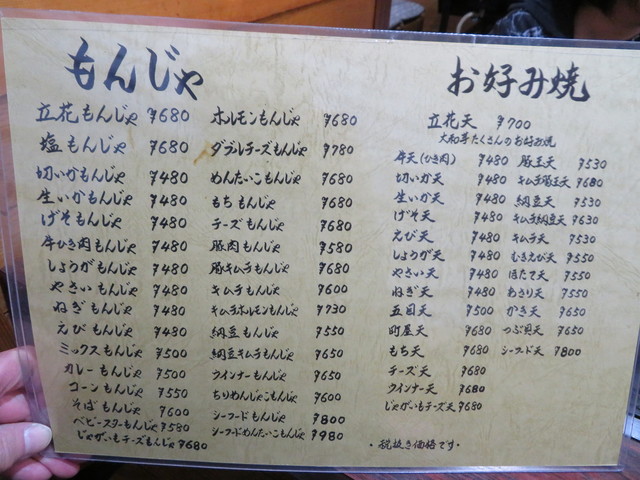 もんじゃ
立花もんじゃ ¥680
塩もんじゃ ¥680
切いかもんじゃ ¥480
生いかもんじゃ ¥480
げそもんじゃ ¥480
牛ひき肉もんじゃ ¥480
しょうがもんじゃ ¥480
やさいもんじゃ ¥480
ねぎもんじゃ ¥480
えびもんじゃ ¥480
ミックスもんじゃ ¥500
カレーもんじゃ ¥500
コーンもんじゃ ¥550
そばもんじゃ ¥600
ベビースターもんじゃ ¥580
じゃがいもチーズもんじゃ ¥680
ホルモンもんじゃ ¥680
ダブルチーズもんじゃ ¥780
めんたいこもんじゃ ¥680
もちもんじゃ ¥680
チーズもんじゃ ¥680
豚肉もんじゃ ¥580
豚キムチもんじゃ ¥680
キムチもんじゃ ¥600
キムチホルモンもんじゃ ¥730
納豆もんじゃ ¥550
納豆キムチもんじゃ ¥650
ウインナーもんじゃ ¥650
ちりめんじゃこもんじゃ ¥600
シーフードもんじゃ ¥800
シーフードめんたいこもんじゃ ¥980
お好み焼
立花天 ¥700
大和芋たくさんのお好み焼
牛天(ひき肉) ¥480
切いか天 ¥480
生いか天 ¥480
げそ天 ¥480
えび天 ¥480
しょうが天 ¥480
やさい天 ¥480
ねぎ天 ¥480
五目天 ¥500
町屋天 ¥680
もち天 ¥680
チーズ天 ¥680
ウインナー天 ¥680
じゃがいもチーズ天 ¥680
豚玉天 ¥530
キムチ豚玉天 ¥680
納豆天 ¥530
キムチ納豆天 ¥630
キムチ天 ¥530
むきえび天 ¥550
ほたて天 ¥550
あさり天 ¥550
かき天 ¥650
つぶ貝天 ¥650
シーフード天 ¥800
・税抜き価格です・